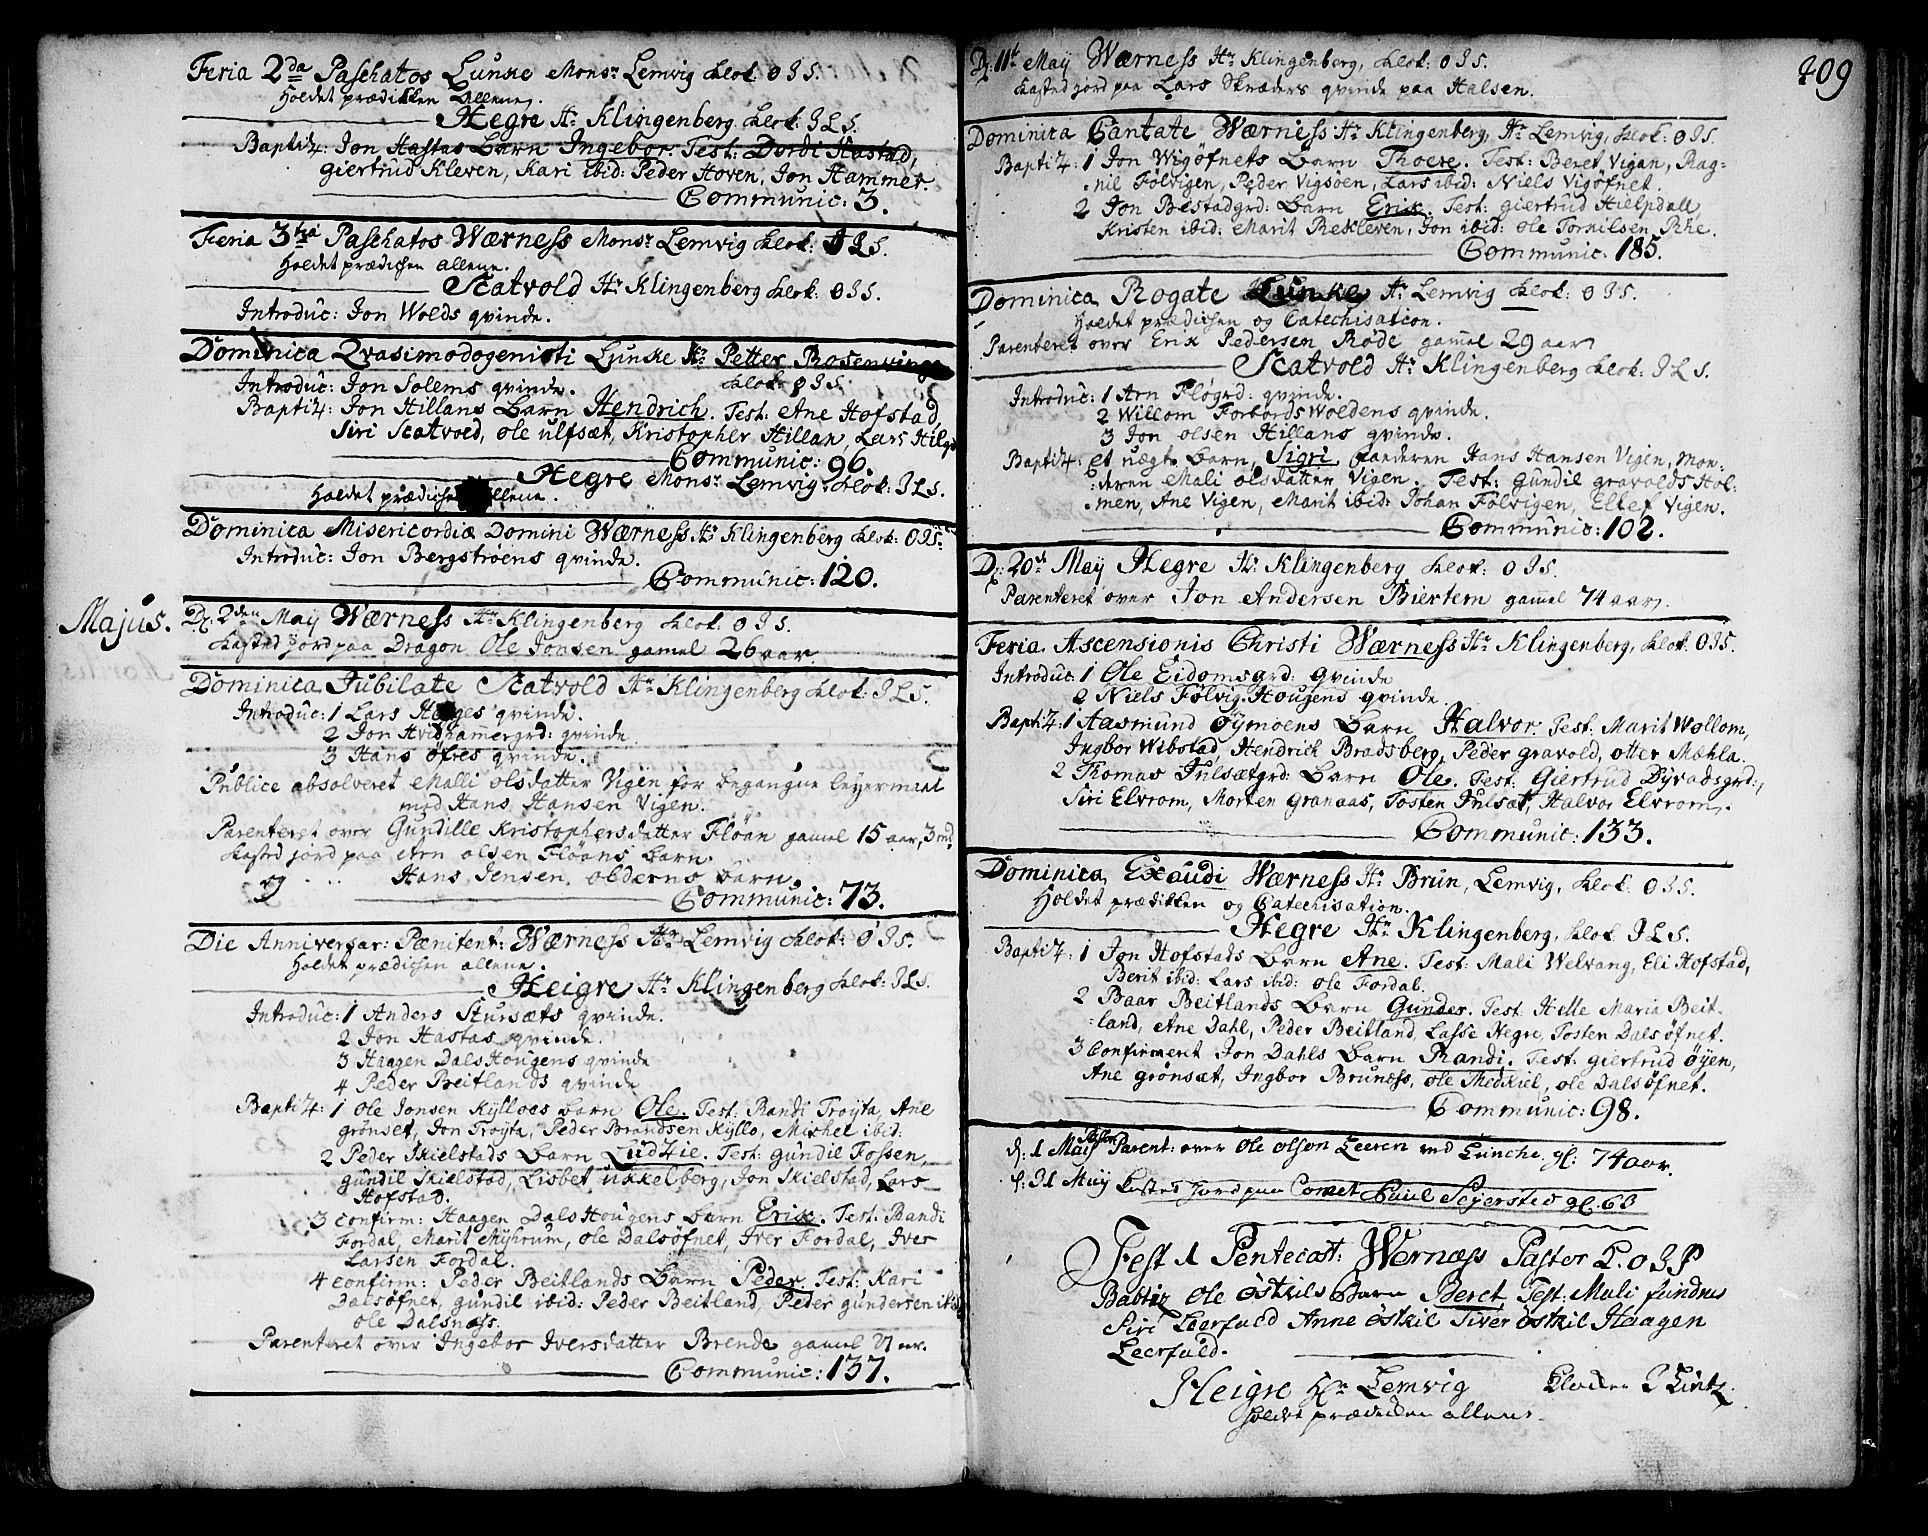 Feria 2da Paschatos Lunke Monsr Lemvig klok: O I S.
Holdet prædiken allene.
Hegre Hr Klingenberg klok: I L S.
Baptiz: Jon Hastas Barn Ingebor. Test: Dordi Hastad,
Giertrud Kleven, Kari ibid: Peder Hoven, Jon Hammer.
Communic: 3.
Feria 3tia Paschatos Wærness Monsr Lemvig klok: O I S.
Holdet prædichen allene.
Scatvold Hr Klingenberg klok: O I S.
Introduc: Jon Wolds qvinde.
Dominica Qvasimodogeniti Lunke Hr Petter Rosenvinge
klok: O I S.
Introduc: Jon Solems qvinde.
Baptiz: Jon Hillans Barn Hendrich. Test: Ane Hofstad,
Siri Scatvold, Ole Ulfsæt, Kristopher Hillan, Lars
Communic: 96.
Hegre Monsr Lemvig klok: I L S.
Holdet prædichen allene.
Dominica Misericordiæ Domini Wærness Hr Klingenberg klok: O I S.
Introduc: Jon Bergstrøens qvinde.
Communic: 120.
Majus.
D: 2den May Wærness Hr Klingenberg klok: O I S.
Kasted jord paa Dragon Ole Jonsen gamel 26 aar.
Dominica Jubilate Scatvold Hr Klingenberg klok: I L S.
Introduc: 1 Lars qvinde.
2 Jon Hvidhammergrd: qvinde.
3 Hans Øfres qvinde.
Publice absolveret Malli Olsdatter Vigen for begangne leyermaal
med Hans Hansen Vigen.
Parenteret over Gundille Kristophersdatter Fløan gamel 15 aar, 3 md
Kasted jord paa Arn Olsen Fløans barn.
og .. Hans Jensen barn.
Communic: 73.
Die Anniversar: Pænitent: Wærness Hr Lemvig klok: O I S.
Holdet prædichen allene.
Heigre Hr Klingenberg klok: I L S.
Introduc: 1 Anders Stursæts qvinde.
2 Jon Hastas qvinde.
3 Haagen DalsHougens qvinde
4 Peder Beitlands qvinde
Baptiz: 1 Ole Jonsen Kylloes Barn Ole. Test: Randi Trøyta, Ane
Grønset, Jon Trøyta, Peder Brandsen Kyllo, Michel ibid:
2 Peder Skielstads Barn Ludzie. Test: Gundil Fossen,
Gundil Skielstad, Lisbet Ukkelberg, Jon Skielstad, Lars
Hofstad.
3 Confirm: Haagen DalsHougens barn Erik. Test: Randi
Fordal, Marit Myhrum, Ole Dalsøfnet, Iver Fordal, Iver
Larsen Fordal.
4 Confirm: Peder Beitlands Barn Peder. Test: Kari
Dalsøfnet, Gundil ibid: Peder Beitland, Peder Gundersen ibid
Ole Dalsness.
Parenteret over Ingebor Iversdatter Brende gamel
Communic: 137.
409
D: 11te May Wærness Hr Klingenberg, klok: O I S.
Kasted jord paa Lars Skræders qvinde paa Halsen.
Dominica Cantate Wærness Hr Klingenberg, Hr Lemvig, klok: O I S.
Baptiz: 1 Jon Wigøfnets Barn Thoere. Test: Beret Vigan, Rag-
nil Følvigen, Peder Vigsøen, Lars ibid: Niels Vigøfnet.
2 Jon Bestadgrd: Barn Erik. Test: Giertrud Hielpdall,
Kristen ibid: Marit Rekleven, Jon ibid: Ole Tornilsen Rhe.
Communic: 185.
Dominica Rogate Lunke Hr Lemvig klok: O I S.
Holdet prædichen og Catechisation.
Parenteret over Erik Pedersen Røde gamel 29 aar
Scatvold Hr Klingenberg klok: I L S.
Introduc: 1 Arn Pløgrd: qvinde.
2 Willom ForbordsWoldens qvinde.
3 Jon Olsen Hillans qvinde.
Baptiz: et uægte barn, Sigri. Faderen Hans Hansen Vigen, Mo-
:deren Mali Olsdatter Vigen. Test: Gundil Gravolds Hol:
:men, Ane Vigen, Marit ibid: Johan Følvigen, Ellef Vigen.
Communic: 102.
D: 20de May Hegre Hr Klingenberg klok: O I S.
Parenteret over Jon Andersen Biertem gamel 74 aar.
Feria Ascensionis Christi Wærness Hr Klingenberg, klok: O I S.
Introduc: 1 Ole Eidomsgrd: qvinde
2 Niels FølvigHougens qvinde.
Baptiz: 1 Aasmund Øymoens Barn Halvor. Test: Marit Wollom,
Ingbor Wibstad Hendrich Bradsberg, Peder Gravold, Otter Mæhla.
2 Thomas Julsætgrd: Barn Ole. Test: Giertrud Dyvadsgrd:,
Siri Elvrom, Morten Granaas, Tosten Julsæt, Halvor Elvrom.
Communic: 133.
Dominica Exaudi Wærness Hr Brun, Lemvig, klok: O I S.
Holdet prædikken og Catechisation.
Hegre Hr Klingenberg, klok I L S.
Baptiz: 1 Jon Hofstads Barn Ane. Test: Mali Welvang, Eli Hofstad,
Berit ibid: Lars ibid: Ole Fordal.
2 Baar Beitlands Barn Gunder. Test: Helle Maria Beit-
:land, Ane Dahl, Peder Beitland, Lasse Hegre, Tosten Dalsøfnet.
3 Confirmert Jon Dahls Barn Randi. Test: Giertrud Øyen,
Ane Grønsæt, Ingbor Bruness, Ole Ole Dalsøfnet.
Communic: 98.
d: 1 Maij Pastor Parent: over Ole Olson Leeren ved Lunche gl: 74 aar.
d: 31 Maij Kasted jord paa Cornet Paul Sejersted gl. 63
Fest 1 Pentecost: Wernæss Pastor L. O I S
Babtiz Ole Østkils Barn Beret Test: Mali
Siri Leerfald Anne Østkil Siver Østkil Haagen
Leerfald.
Heigre Hr Lemvig Klocker
Holdet prædikken allene.